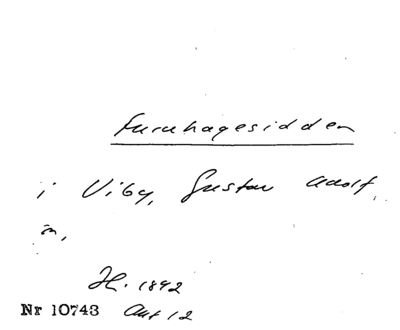 Furuhagesidden
i Viby, Gustav Adolf,
sn,
H. 1892
Nr 10743